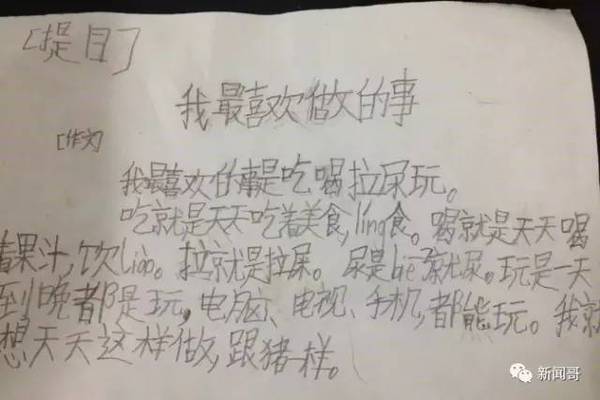 [提目]
我最喜欢做的事
[作文]
我最喜欢的事是吃喝拉尿玩。
吃就是天天吃着美食,ling食。喝就是天天喝
着果汁,饮liào。拉就是拉屎。尿是biē了就尿。玩是一天
到晚都是玩,电脑、电视、手机,都能玩。我就
想天天这样做,跟猪一样。
新闻哥